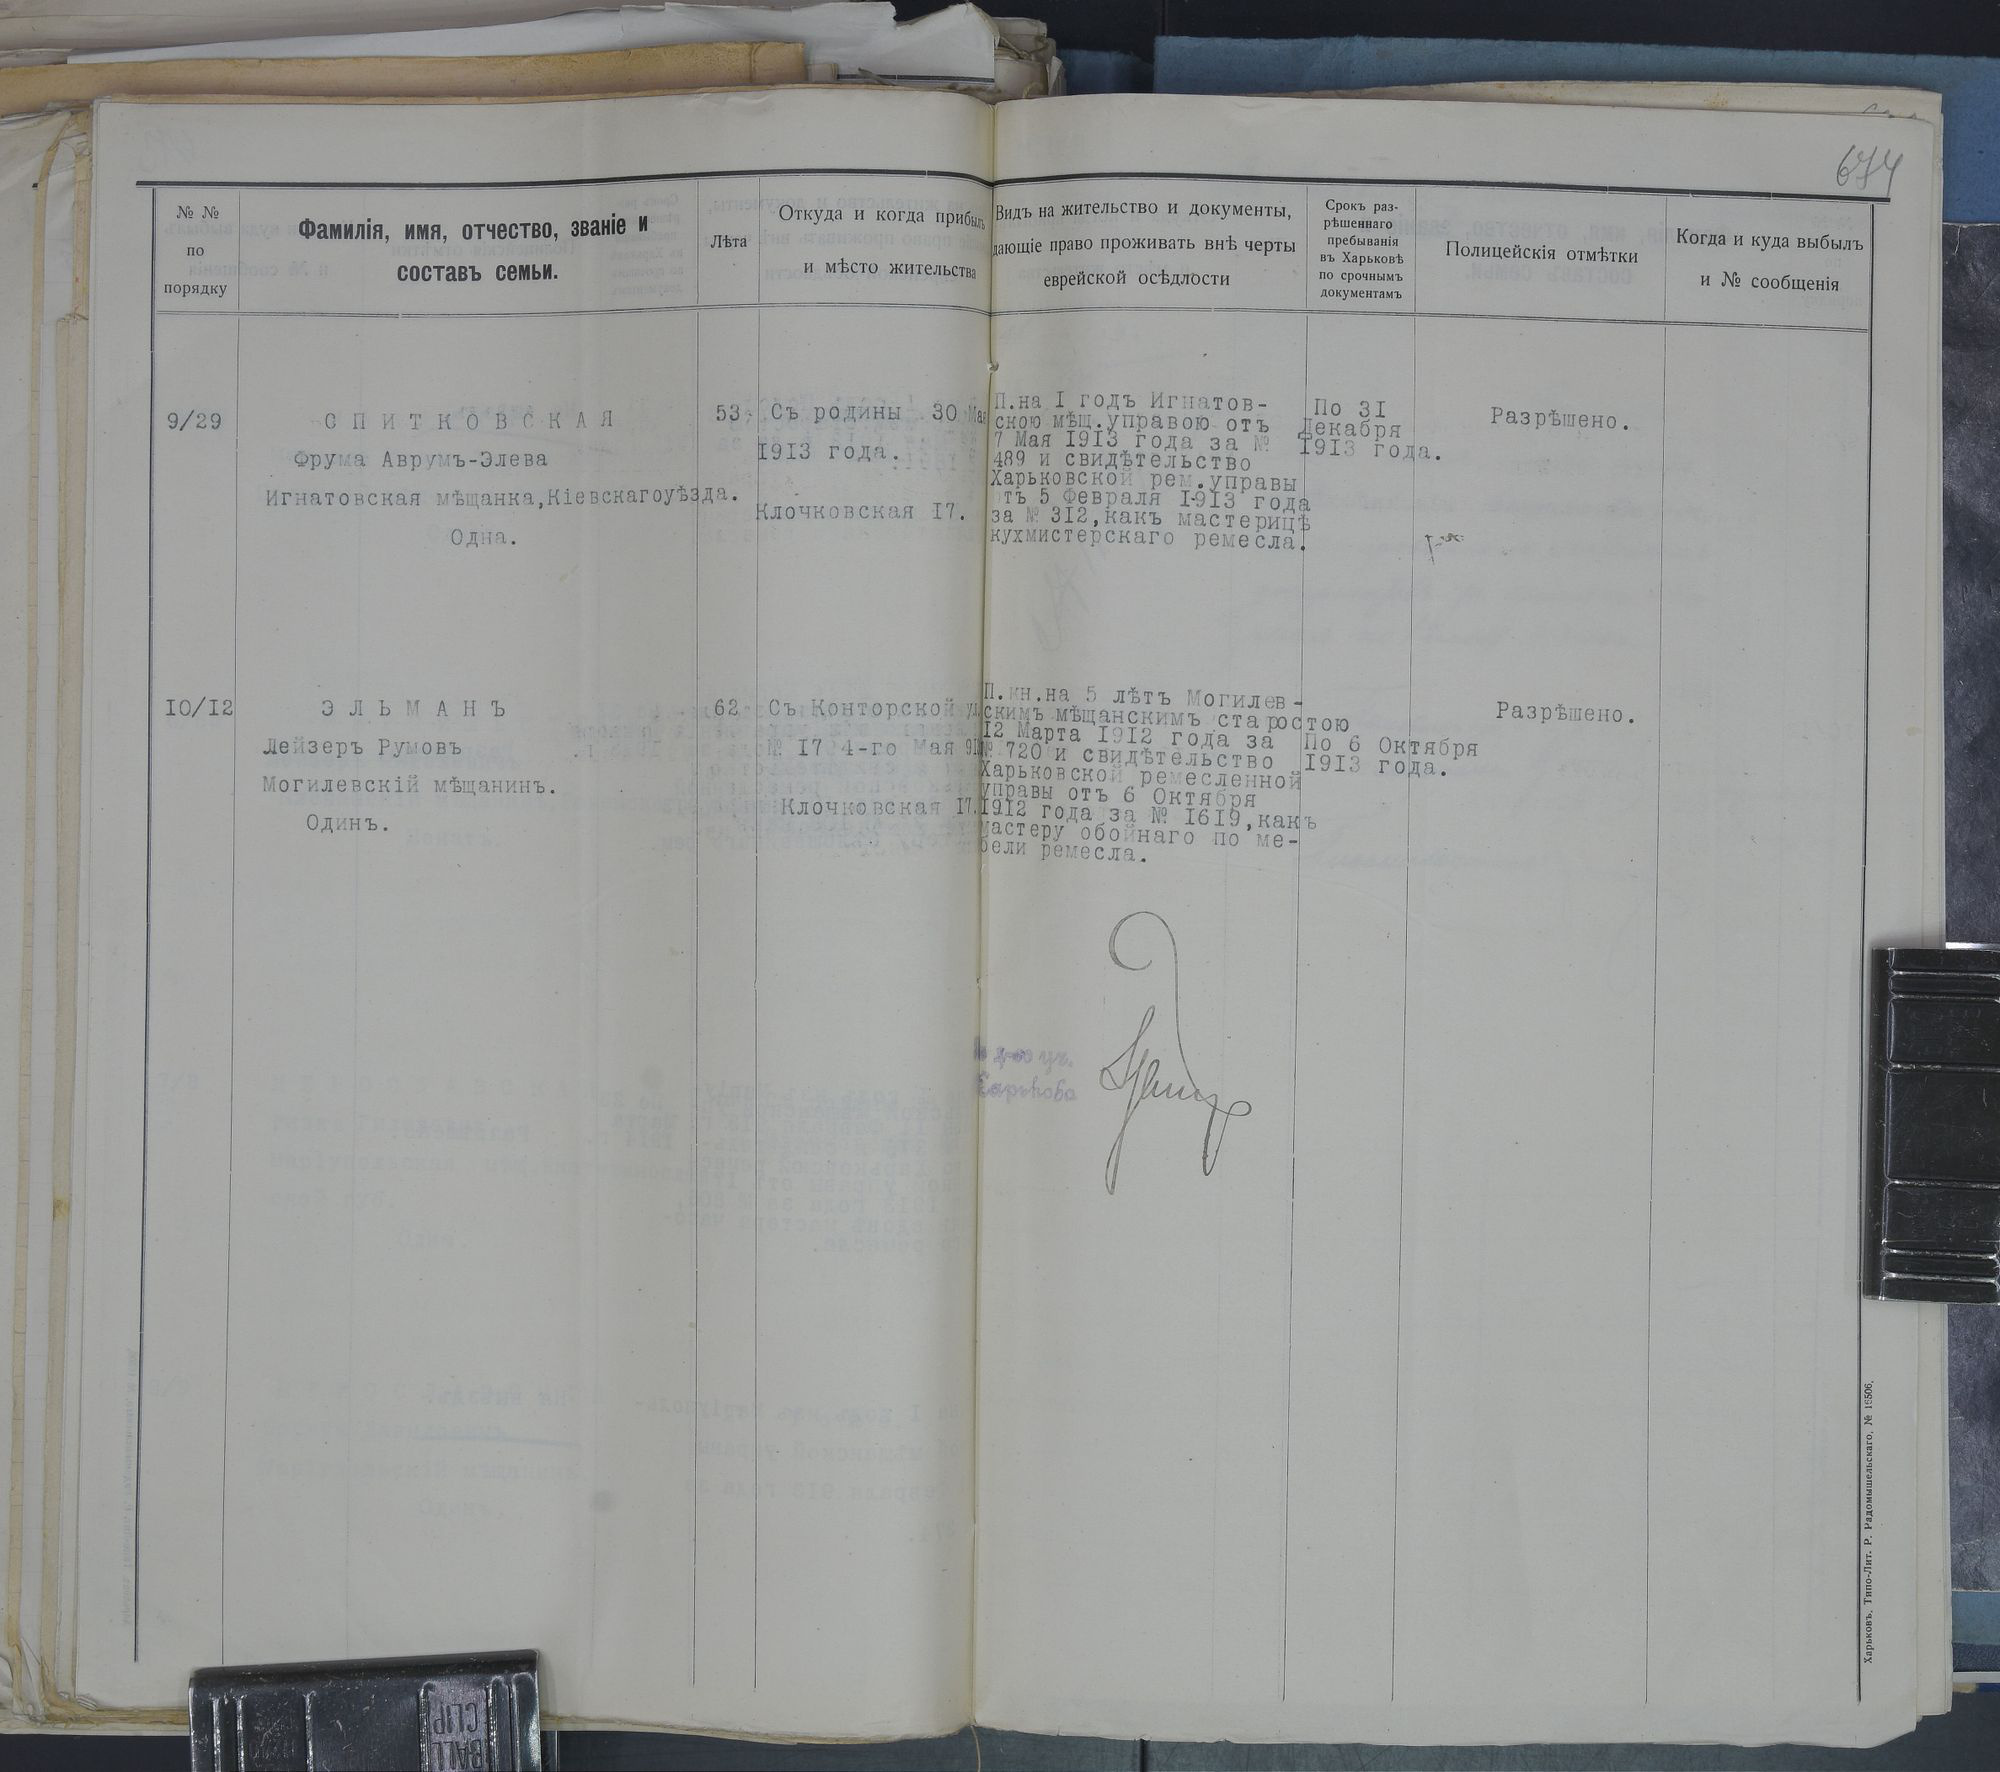 674
№ №
по
порядку
Фамилія, имя, отчество, званіе и
составъ семьи.
Лѣта
Откуда и когда прибылъ
и мѣсто жительства
Видъ на жительство и документы,
дающіе право проживать внѣ черты
еврейской осѣдлости
Срокъ раз-
рѣшеннаго
пребыванія
въ Харьковѣ
по срочнымъ
документамъ
Полицейскія отмѣтки
Когда и куда выбылъ
и № сообщенія
9/29
СПИТКОВСКАЯ
Фрума Аврумъ-Элева
Игнатовская мѣщанка,Кіевскагоуѣзда.
Одна.
53.
Съ родины 30 Мая
1913 года.
Клочковская 17.
П.на I годъ Игнатов-
скою мѣщ.управою отъ
7 Мая 1913 года за №
489 и свидѣтельство
Харьковской рем.управы
отъ 5 Февраля 1913 года
за № 312,какъ мастерицѣ
кухмистерскаго ремесла.
По 31
Декабря
1913 года.
Разрѣшено.
10/12
ЭЛЬМАНЪ
Лейзеръ Румовъ
Могилевскій мѣщанинъ.
Одинъ.
62
Съ Конторской ул.
№ 17 4-го Мая 913
Клочковская 17.
П.кн.на 5 лѣтъ Могилев-
скимъ мѣщанскимъ старостою
12 Марта 1912 года за
№ 720 и свидѣтельство
Харьковской ремесленной
управы отъ 6 Октября
1912 года за № 1619,какъ
мастеру обойнаго по ме-
бели ремесла.
По 6 Октября
1913 года.
Разрѣшено.
уч.
Харькова
Харьковъ. Типо-Лит. Р. Радомышельскаго, № 15506.
BALL
CLIP